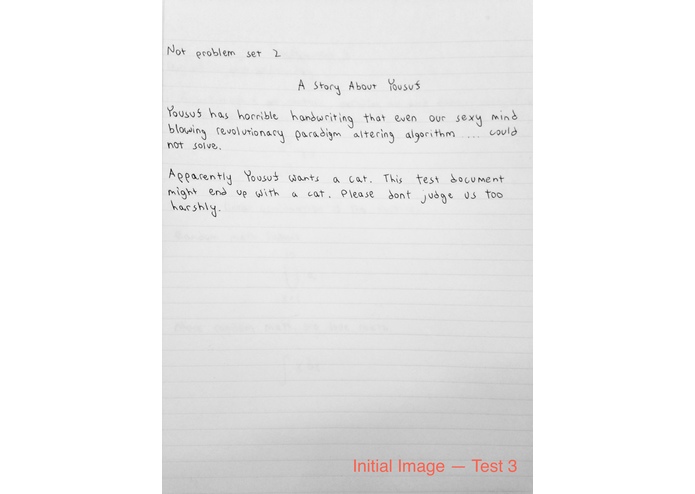 Not problem set 2
A Story About Yousuf
Yousuf has horrible handwriting that even our sexy mind
blowing revolutionary paradigm altering algorithm ... could
not solve.
Apparently Yousuf wants a cat. This test document
might end up with a cat. Please dont judge us too
harshly.
Initial Image — Test 3